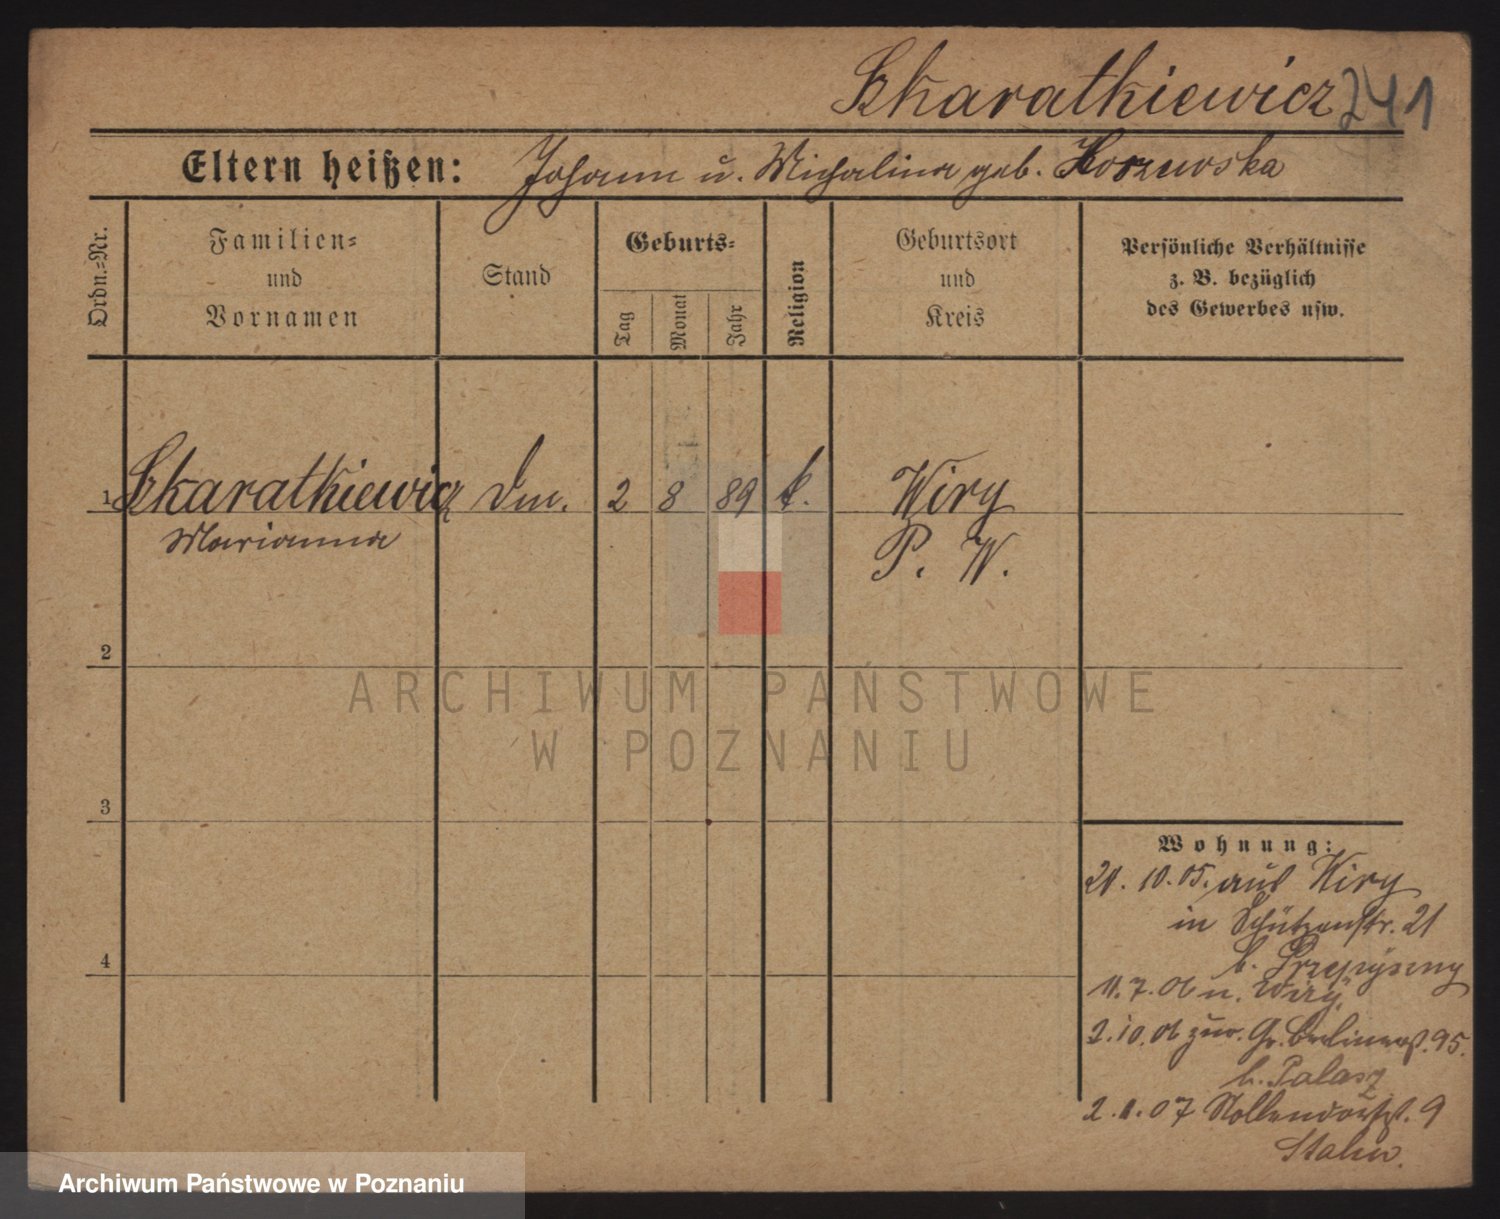 Skaratkiewicz 241
Eltern heißen: Johann u. Michalina geb. Korzewska
Ordn.-Nr.
Familien-
und
Vornamen
Stand
Geburts-
Tag
Monat
Jahr
Religion
Geburtsort
und
Kreis
Persönliche Verhältnisse
z. B. bezüglich
des Gewerbes usw.
1 Skaratkiewicz Dm. 2 8 89 k. Wiry
Marianna P. W.
2
ARCHIWUM PAŃSTWOWE
W POZNANIU
3
Wohnung:
21. 10. 05. aus Wiry
in Schützenstr. 21
4
b. Przepyszny
11. 7. 06 n. Wiry
2. 10. 06 zuw. Gr. Berlinerst. 95.
b. Palasz
2. 1. 07 Nollendorfst. 9
Archiwum Państwowe w Poznaniu